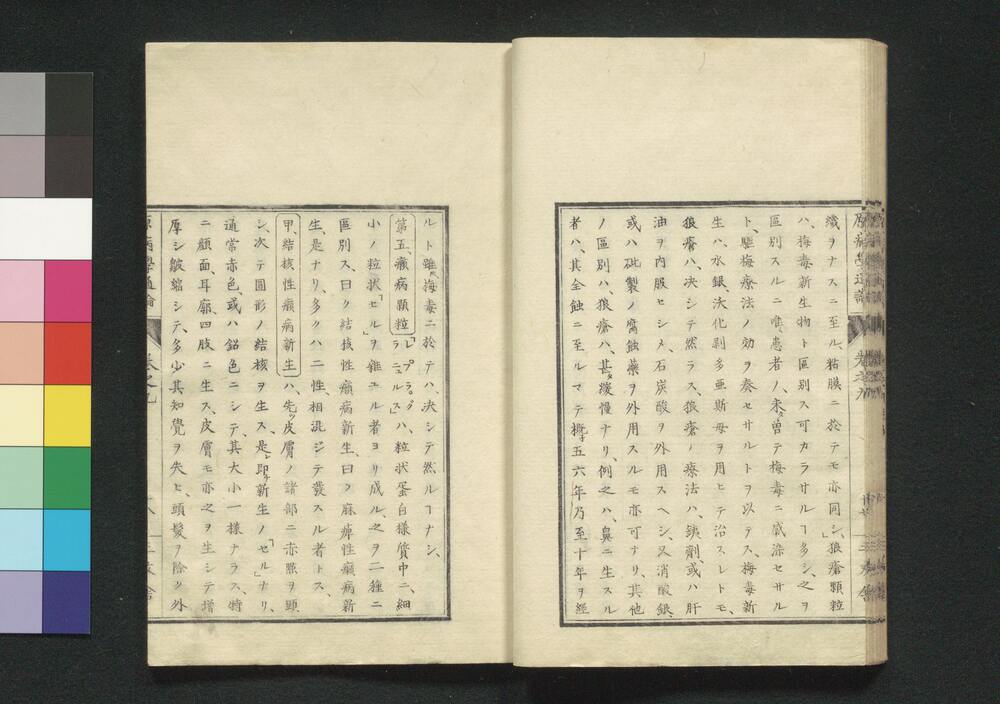 織ヲナスニ至ル、粘膜ニ於テモ亦同シ、狼瘡顆粒
ハ、梅毒新生物ト区別ス可カラサルヿ多シ、之ヲ
区別スルニ唯患者ノ、未タ曽テ梅毒ニ感染セサル
ト、駆梅療法ノ効ヲ奏セサルトヲ以テス、梅毒新
生ハ、水銀沃化剥多亜斯母ヲ用ヒテ治スレトモ、
狼瘡ハ、决シテ然ラス、狼瘡ノ療法ハ、鉄劑、或ハ肝
油ヲ内服セシメ、石炭酸ヲ外用スヘシ、又消酸銀、
或ハ砒製ノ腐蝕藥ヲ外用スルモ亦可ナリ、其他
ノ區別ハ、狼瘡ハ、甚タ緩慢ナリ、例之ハ、鼻ニ生スル
者ハ、其全蝕ニ至ルマテ概子五六年乃至十年ヲ経
ルト雖𪜈、梅毒ニ於テハ、决シテ然ルヿナシ、
第五、癩病顆粒「レプラ、グラニュルス」ハ、粒状蛋白様質中ニ、細
小ノ粒状「セル」ヲ雑ユル者ヨリ成ル、之ヲ二種ニ
區別ス、曰ク結核性癩病新生、曰ク麻痺性癩病新
生、是ナリ、多クハ二性、相混シテ發スル者トス、
甲、結核性癩病新生ハ、先ツ皮膚ノ諸部ニ赤㸃ヲ顕
シ、次テ圓形ノ結核ヲ生ス、是レ即チ新生ノ「セル」ナリ、
通常赤色、或ハ鉛色ニシテ、其大小一様ナラス、特
ニ顔面、耳廓、四肢ニ生ス、皮膚モ亦之ヲ生シテ増
厚シ皺縮シテ、多少其知覺ヲ失ヒ、頭髮ヲ除ク外
原病學通論
巻之九
三友舎